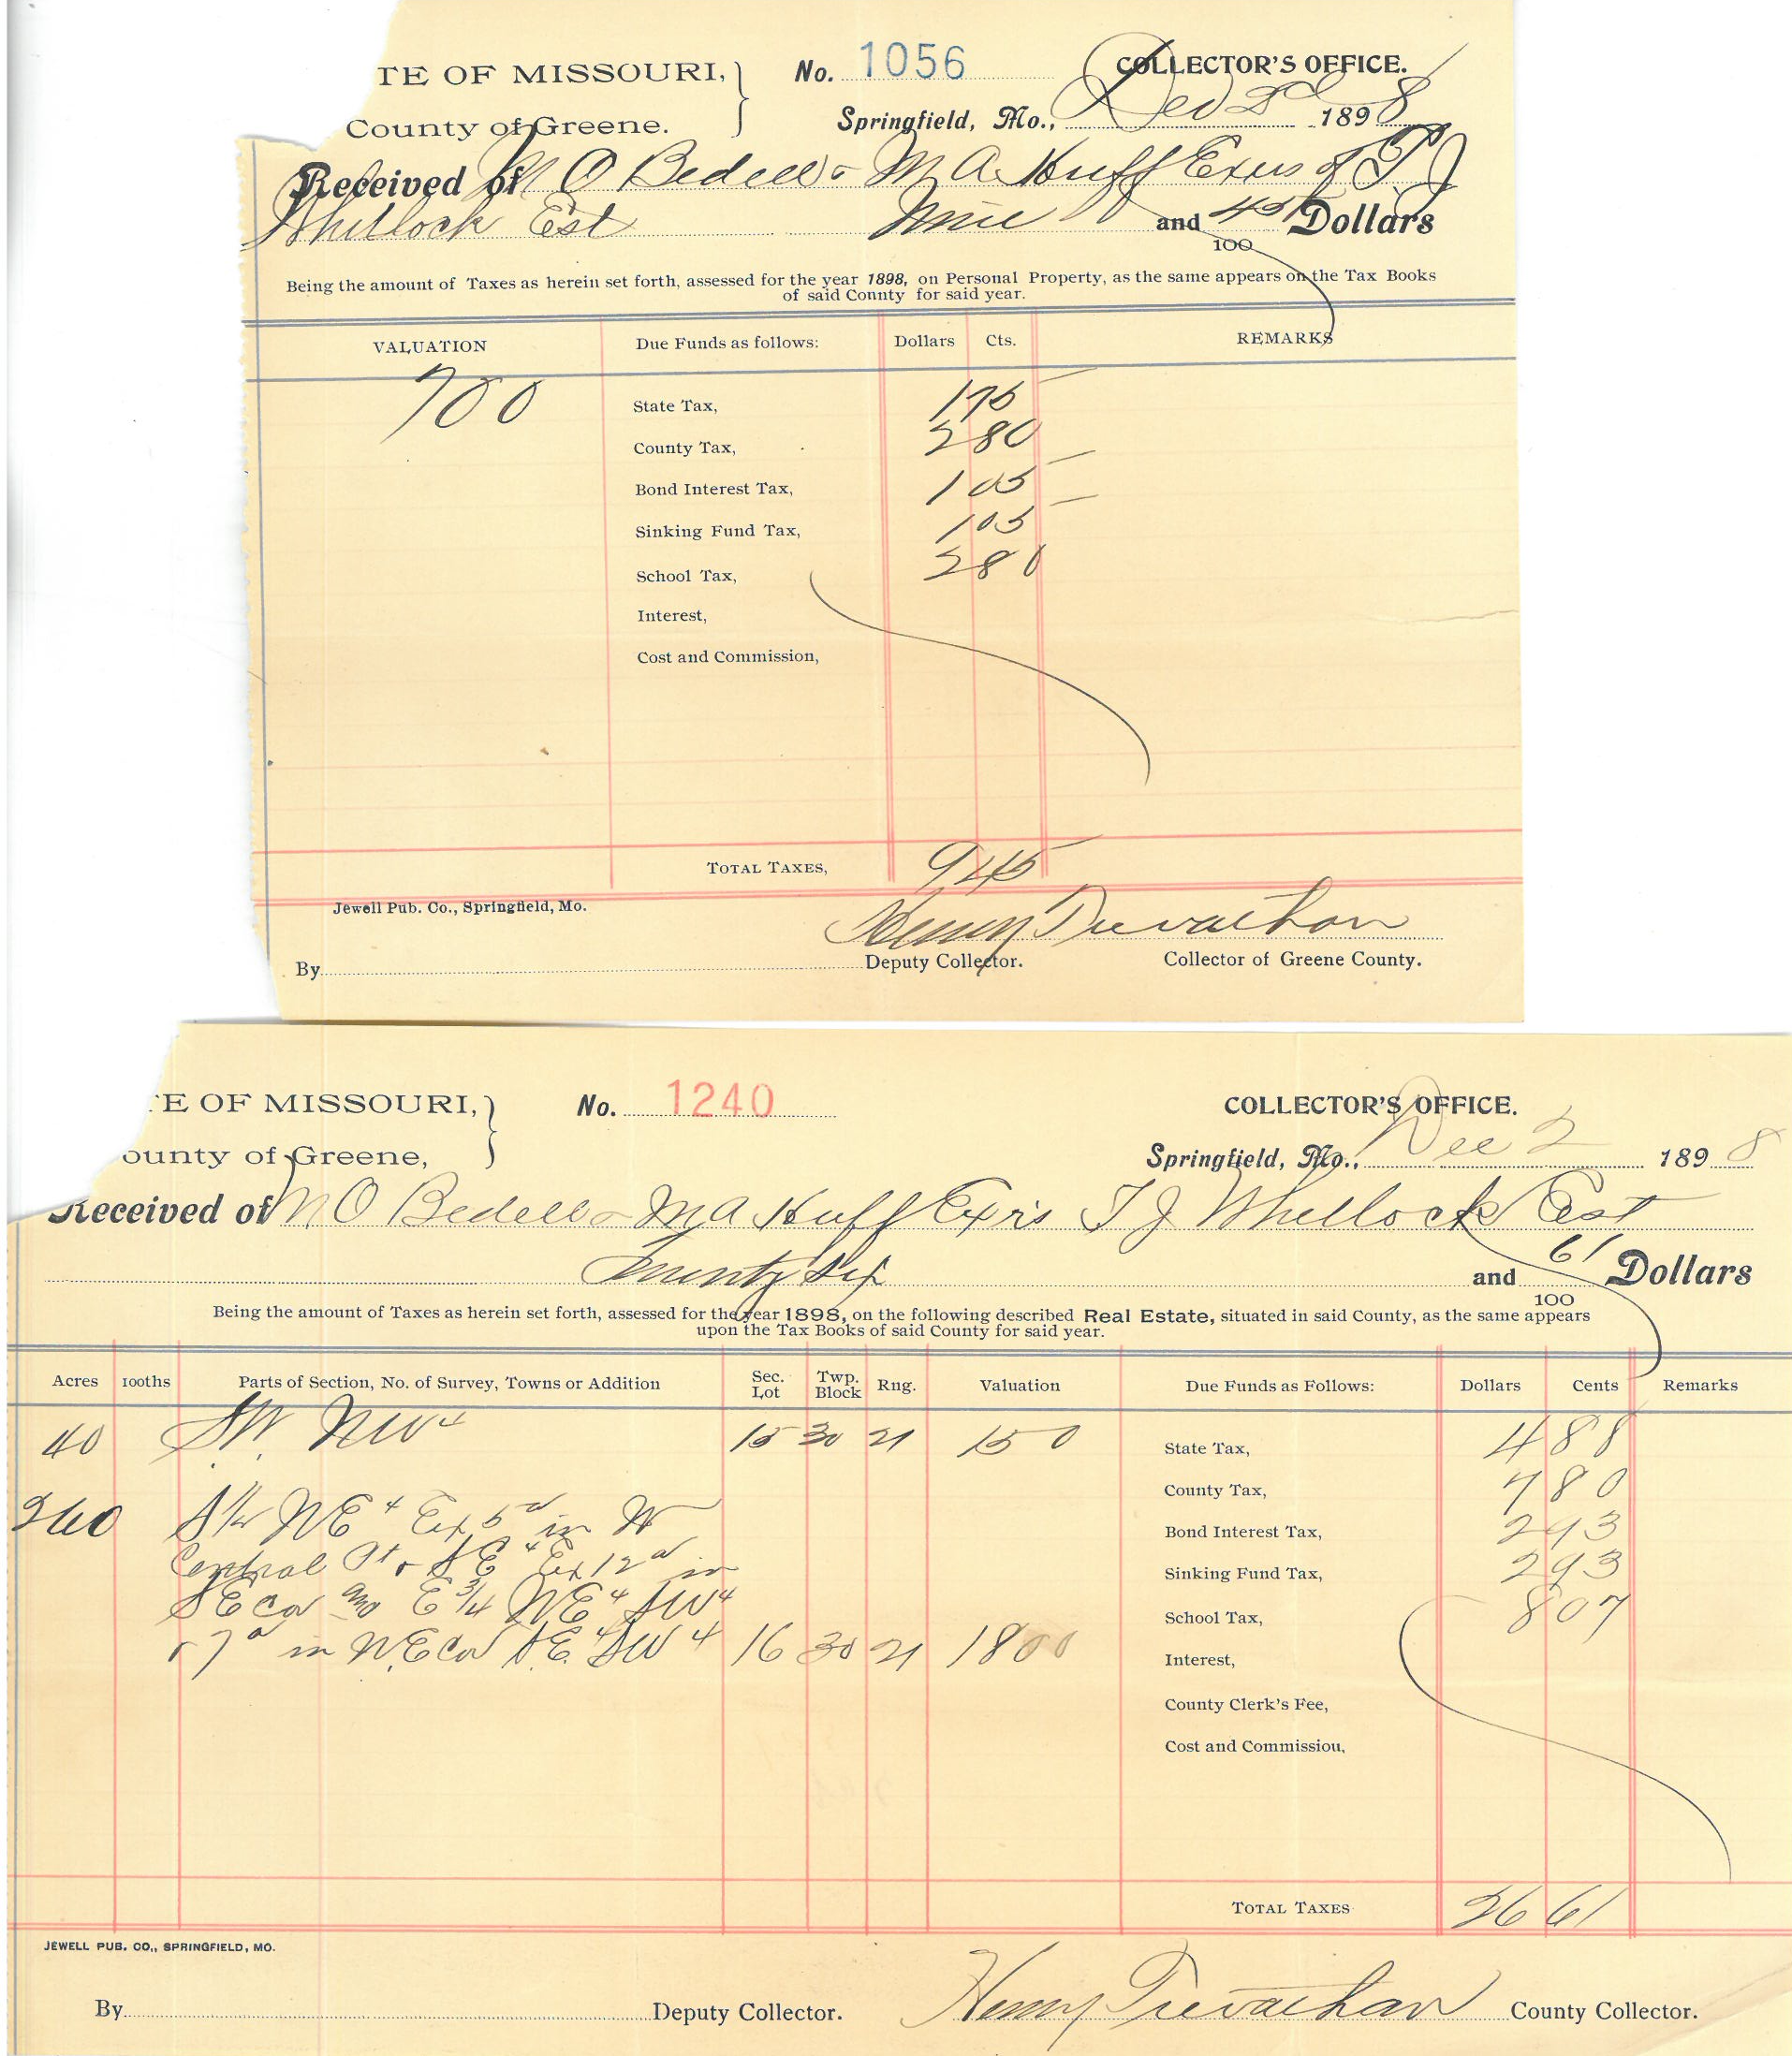 TE OF MISSOURI, } No. 1056 COLLECTOR'S OFFICE.
County of Greene. Springfield, Mo., Dec 2d 1898
Received of N O Bedell & M A Huff Exrs of T J
Whitlock Est Nine and 45/100 Dollars
Being the amount of Taxes as herein set forth, assessed for the year 1898, on Personal Property, as the same appears on the Tax Books
of said Connty for said year.
VALUATION Due Funds as follows: Dollars Cts. REMARKS
700 State Tax, 1 75
County Tax, 2 80
Bond Interest Tax, 1 05
Sinking Fund Tax, 1 05
School Tax, 2 80
Interest,
Cost and Commission,
TOTAL TAXES, 9 45
Jewell Pub. Co., Springfield, Mo.
Henry Trevathan
By Deputy Collector. Collector of Greene County.
E OF MISSOURI, } No. 1240 COLLECTOR'S OFFICE.
ounty of Greene, Springfield, Mo., Dec 2 1898
Received of N O Bedell & M A Huff Exrs T J Whitlock Est
Twenty Six and 61/100 Dollars
Being the amount of Taxes as herein set forth, assessed for the year 1898, on the following described Real Estate, situated in said County, as the same appears
upon the Tax Books of said County for said year.
Acres 100ths Parts of Section, No. of Survey, Towns or Addition Sec. Lot Twp. Block Rng. Valuation Due Funds as Follows: Dollars Cents Remarks
40 SW NW4 15 30 21 150 State Tax, 4 88
County Tax, 7 80
260 NE4 Ex 5a in W Bond Interest Tax, 2 93
Central Pt & SE4 Ex 12a in Sinking Fund Tax, 2 93
SE Cor and E 3/4 NE4 SW4 School Tax, 8 07
& 7a in N.E Cor S.E.4 SW4 16 30 21 1800 Interest,
County Clerk's Fee,
Cost and Commissiou,
TOTAL TAXES 26 61
JEWELL PUB. CO., SPRINGFIELD, MO.
By Deputy Collector. Henry Trevathan County Collector.